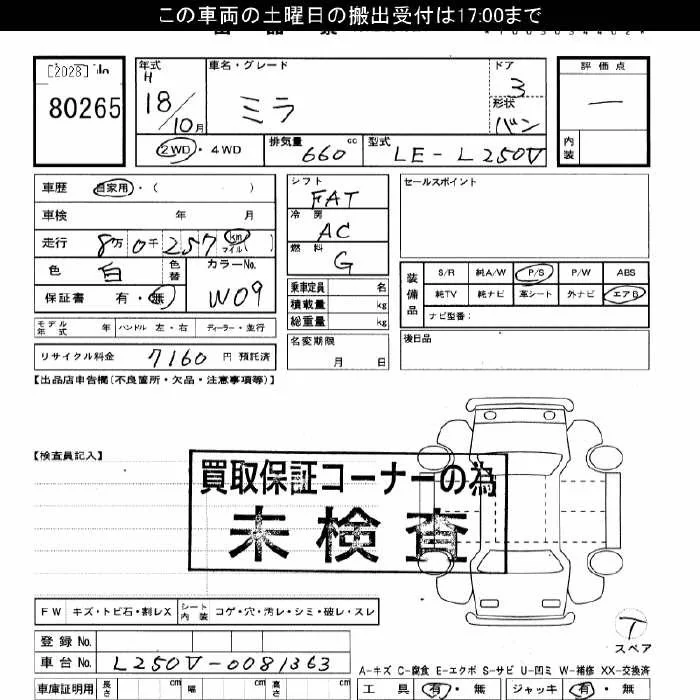 この車両の土曜日の搬出受付は17:00まで
[2028] No
80265
年式 車名・グレード ドア 評価点
H 18/10月 ミラ 3 形状 バン 一
内装
2WD・4WD 排気量 660 cc 型式 LE-L250V
車歴 自家用・( )
車検 年 月
走行 8万0千257 km マイル( )
色 白 色替 カラーNo. W09
保証書 有・無
モデル年式 年 ハンドル 左・右 ディーラー・並行
リサイクル料金 7160 円 預託済
シフト FAT
冷房 AC
燃料 G
乗車定員 名
積載量 kg
総重量 kg
名変期限
月 日
セールスポイント
装備品
S/R 純A/W P/S P/W ABS
純TV 純ナビ 革シート 外ナビ エアB
ナビ型番:
後日品
【出品店申告欄(不良箇所・欠品・注意事項等)】
【検査員記入】
買取保証コーナーの為
未検査
FW キズ・トビ石・割レX シート内装 コゲ・穴・汚レ・シミ・破レ・スレ
T
スペア
登録No.
車台No. L250V-0081363
A-キズ C-腐食 E-エクボ S-サビ U-凹ミ W-補修 XX-交換済
車庫証明用 長さ cm 幅 cm 高さ cm 工具 有・無 ジャッキ 有・無